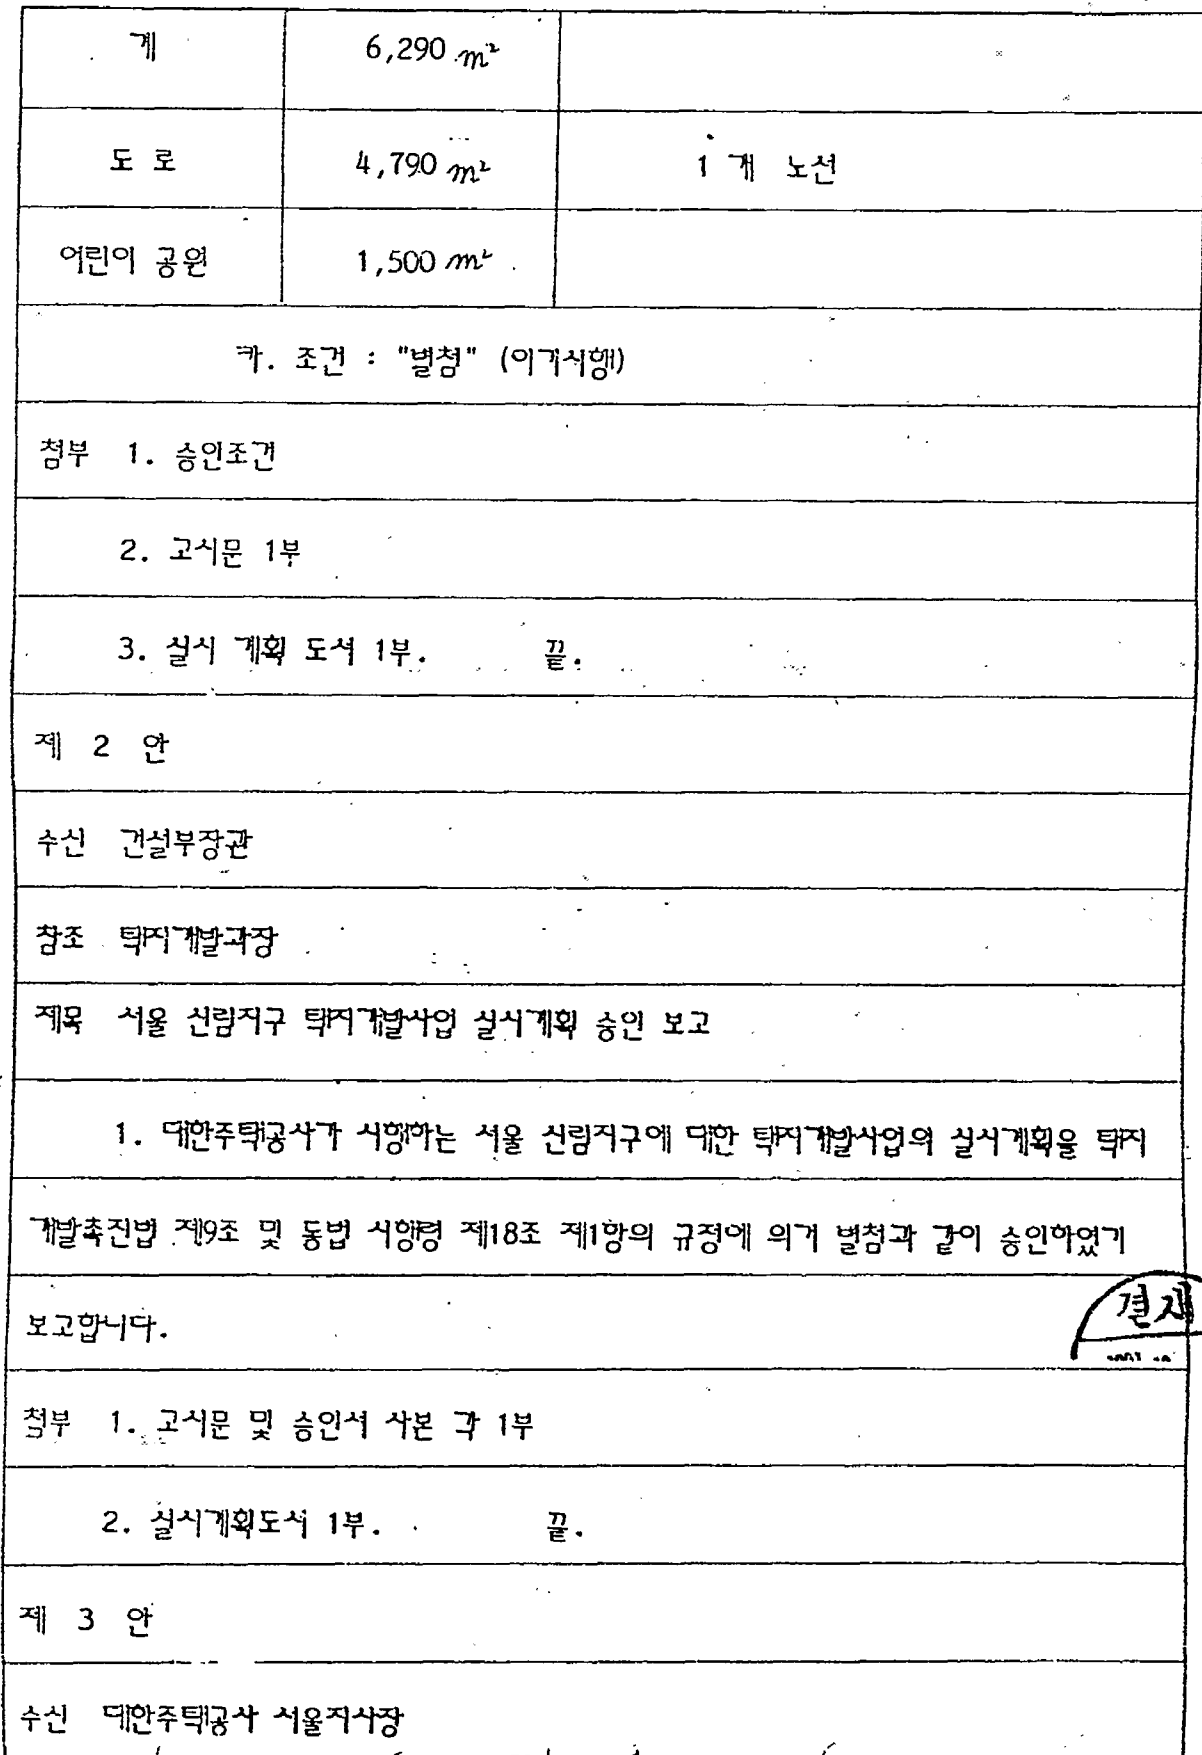 계 6,290 m²
도 로 4,790 m² 1 개 노선
어린이 공원 1,500 m²
카. 조건 : "별첨" (이기시행)
첨부 1. 승인조건
2. 고시문 1부
3. 실시 계획 도서 1부. 끝.
제 2 안
수신 건설부장관
참조 택지개발과장
제목 서울 신림지구 택지개발사업 실시계획 승인 보고
1. 대한주택공사가 시행하는 서울 신림지구에 대한 택지개발사업의 실시계획을 택지
개발촉진법 제9조 및 동법 시행령 제18조 제1항의 규정에 의거 별첨과 같이 승인하였기
보고합니다.
결재
첨부 1. 고시문 및 승인서 사본 각 1부
2. 실시계획도서 1부. 끝.
제 3 안
수신 대한주택공사 서울지사장